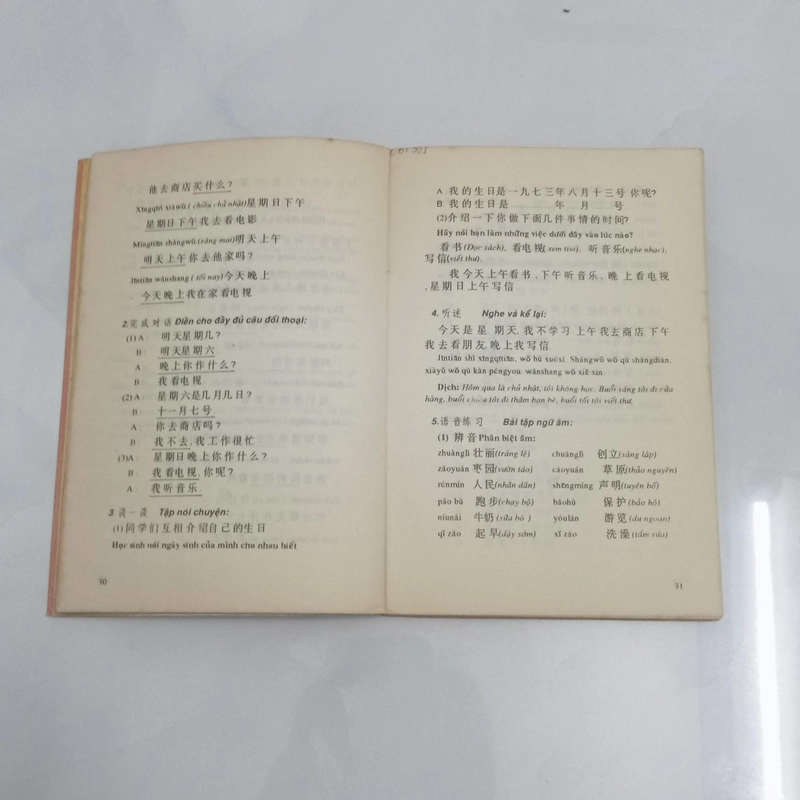 他去商店买什么?
Xīngqīrì xiàwǔ(chiều chủ nhật)星期日下午
星期日下午我去看电影
Míngtiān shàngwǔ(sáng mai)明天上午
明天上午你去他家吗?
Jīntiān wǎnshang (tối nay)今天晚上
今天晚上我在家看电视
2.完成对话 Điền cho đầy đủ câu đối thoại:
(1) A: 明天星期几?
B: 明天星期六
A: 晚上你作什么?
B: 我看电视.
(2) A: 星期六是几月几日?
B: 十一月七号
A: 你去商店吗?
B: 我不去,我工作很忙
(3)A: 星期日晚上你作什么?
B: 我看电视,你呢?
A: 我听音乐.
3.谈一谈 Tập nói chuyện:
(1)同学们互相介绍自己的生日
Học sinh nói ngày sinh của mình cho nhau biết
30
A: 我的生日是一九七三年八月十三号 你呢?
B: 我的生日是 年 月 号
(2)介绍一下你做下面几件事情的时间?
Hãy nói bạn làm những việc dưới đây vào lúc nào?
看书(Đọc sách), 看电视(xem tivi), 听音乐(nghe nhạc),
写信(viết thư).
我今天上午看书,下午听音乐,晚上看电视
,星期日上午写信
4.听述 Nghe và kể lại:
今天是星期天,我不学习 上午我去商店 下午
我去看朋友,晚上我写信.
Jīntiān shì xīngqītiān, wǒ bù xuéxí. Shàngwǔ wǒ qù shāngdiàn,
xiàyǔ wǒ qù kàn péngyou, wǎnshang wǒ xiě xìn.
Dịch: Hôm qua là chủ nhật, tôi không học. Buổi sáng tôi đi cửa
hàng, buổi chiều tôi đi thăm bạn bè, buổi tối tôi viết thư.
5.语音练习 Bài tập ngữ âm:
(1) 辨音 Phân biệt âm:
zhuànglì 壮丽(tráng lệ) chuànglì 创立(sáng lập)
zǎoyuán 枣园(vườn táo) cǎoyuán 草原(thảo nguyên)
rénmín 人民(nhân dân) shēngmíng 声明(tuyên bố)
pǎo bù 跑步(chạy bộ) bǎohù 保护(bảo hộ)
niúnǎi 牛奶(sữa bò) yóulǎn 游览(du ngoạn)
qǐ zǎo 起早(dậy sớm) xǐ zǎo 洗澡(tắm rửa)
31